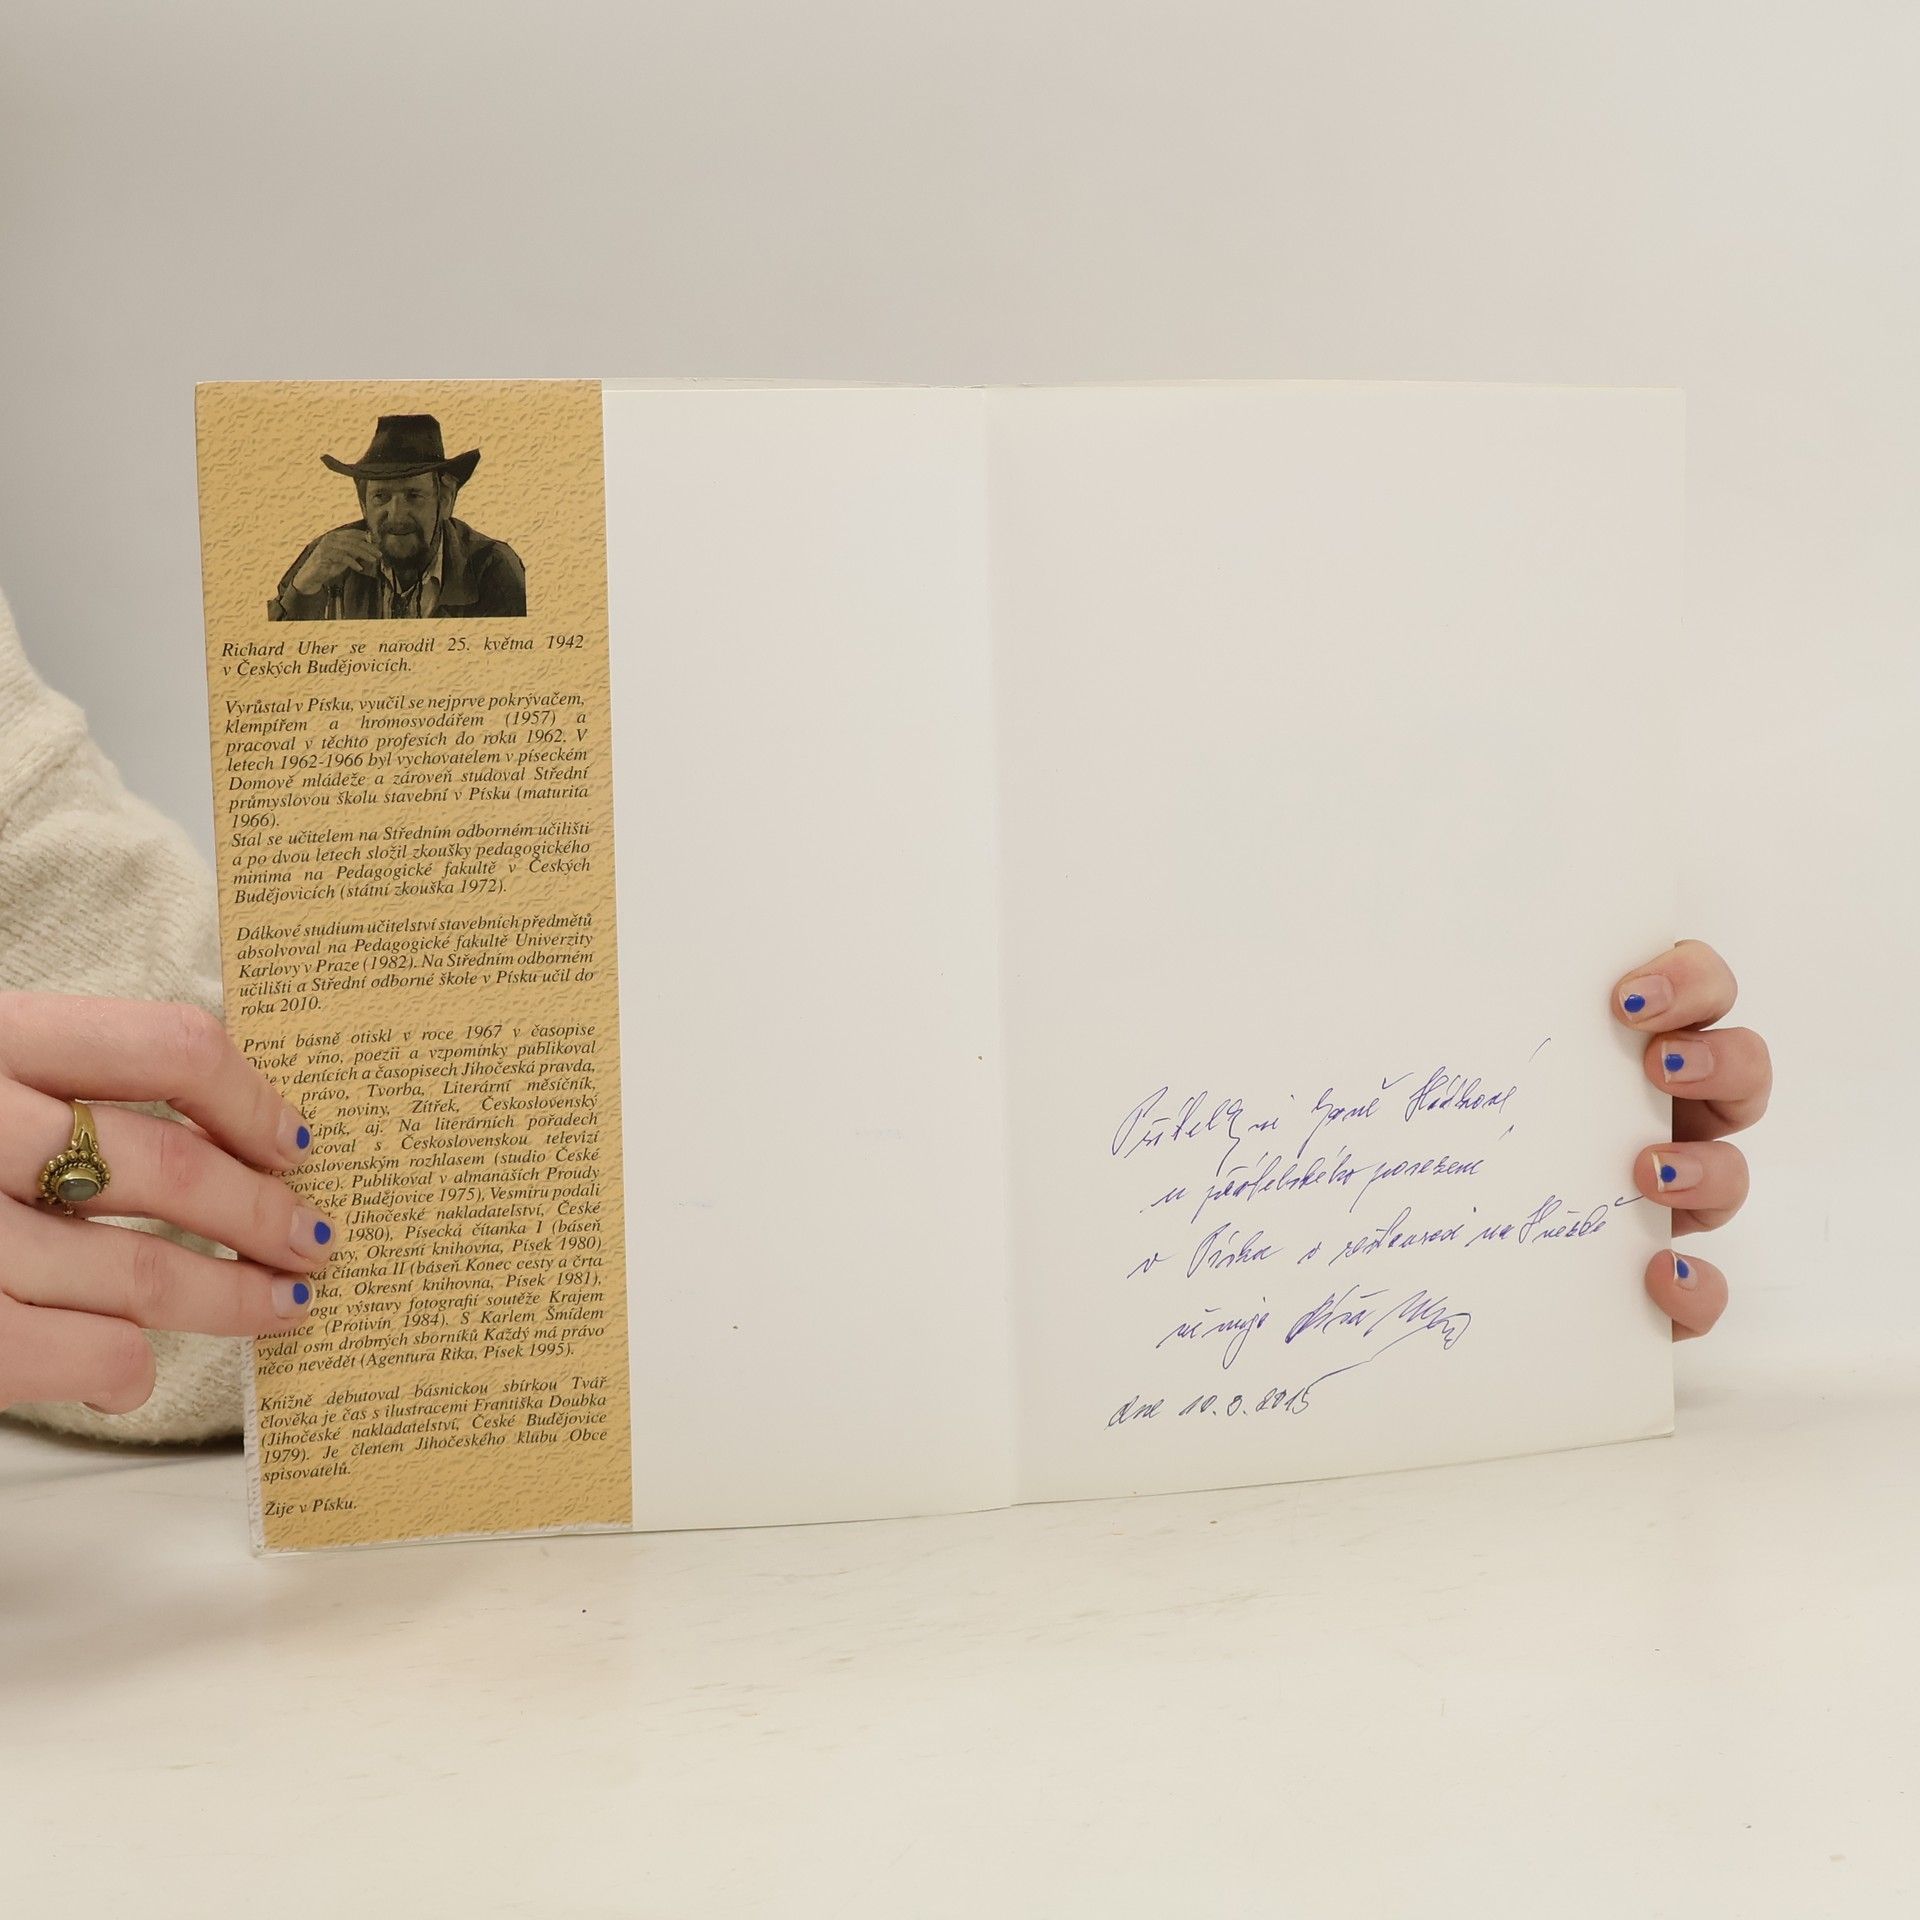 Richard Uher se narodil 25. května 1942
v Českých Budějovicích.
Vyrůstal v Písku, vyučil se nejprve pokrývačem,
klempířem a hromosvodářem (1957) a
pracoval v těchto profesích do roku 1962. V
letech 1962-1966 byl vychovatelem v píseckém
Domově mládeže a zároveň studoval Střední
průmyslovou školu stavební v Písku (maturita
1966).
Stal se učitelem na Středním odborném učilišti
a po dvou letech složil zkoušky pedagogického
minima na Pedagogické fakultě v Českých
Budějovicích (státní zkouška 1972).
Dálkové studium učitelství stavebních předmětů
absolvoval na Pedagogické fakultě Univerzity
Karlovy v Praze (1982). Na Středním odborném
učilišti a Střední odborné škole v Písku učil do
roku 2010.
První básně otiskl v roce 1967 v časopise
Divoké víno, poezii a vzpomínky publikoval
v denících a časopisech Jihočeská pravda,
právo, Tvorba, Literární měsíčník,
noviny, Zítřek, Československý
Lipík, aj. Na literárních pořadech
s Československou televizí
Československým rozhlasem (studio České
Publikoval v almanaších Proudy
České Budějovice 1975), Vesmíru podali
(Jihočeské nakladatelství, České
1980), Písecká čítanka I (báseň
Okresní knihovna, Písek 1980)
čítanka II (báseň Konec cesty a črta
Okresní knihovna, Písek 1981),
výstavy fotografií soutěže Krajem
Blanice (Protivín 1984). S Karlem Šmídem
vydal osm drobných sborníků Každý má právo
něco nevědět (Agentura Rika, Písek 1995).
Knižně debutoval básnickou sbírkou Tvář
člověka je čas s ilustracemi Františka Doubka
(Jihočeské nakladatelství, České Budějovice
1979). Je členem Jihočeského klubu Obce
spisovatelů.
Žije v Písku.
Janě
u přátelského posezení
v Písku v restauraci na
věnuje
dne 10.3.2015